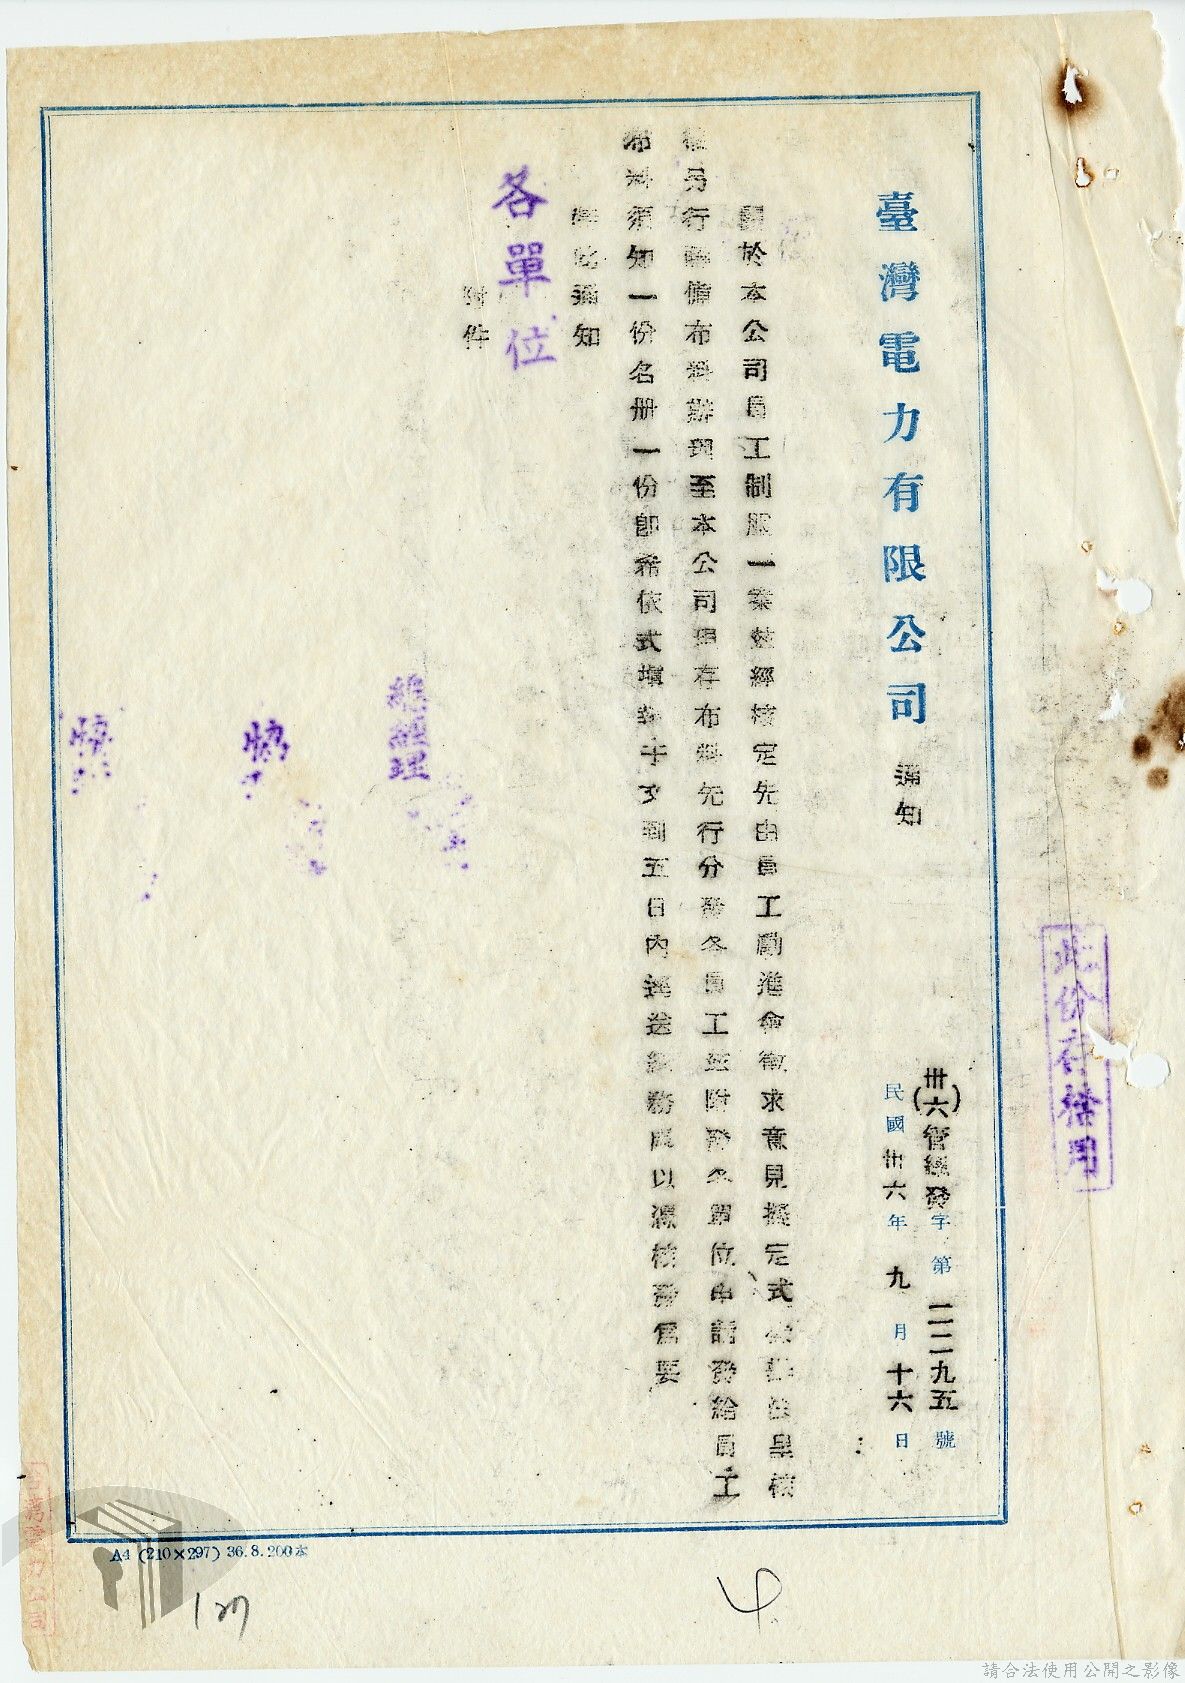 臺灣電力有限公司 通知
(卅六)管總發字第一二二九五號
民國卅六年九月十六日
關於本公司員工制服一案茲經核定先由員工勵進會徵求意見擬定式樣辦法呈核
後另行籌備布料辦理至本公司現存布料先行分發各員工並附發各單位申請發給員工
布料須知一份名册一份卽希依式填就于文到五日內逕送 務 以 核發爲要
此通知
各單位
附件
總經理
協
協
此份存  用
A4 (210×297) 36.8.200本
127
4
台灣電力公司
請合法使用公開之影像